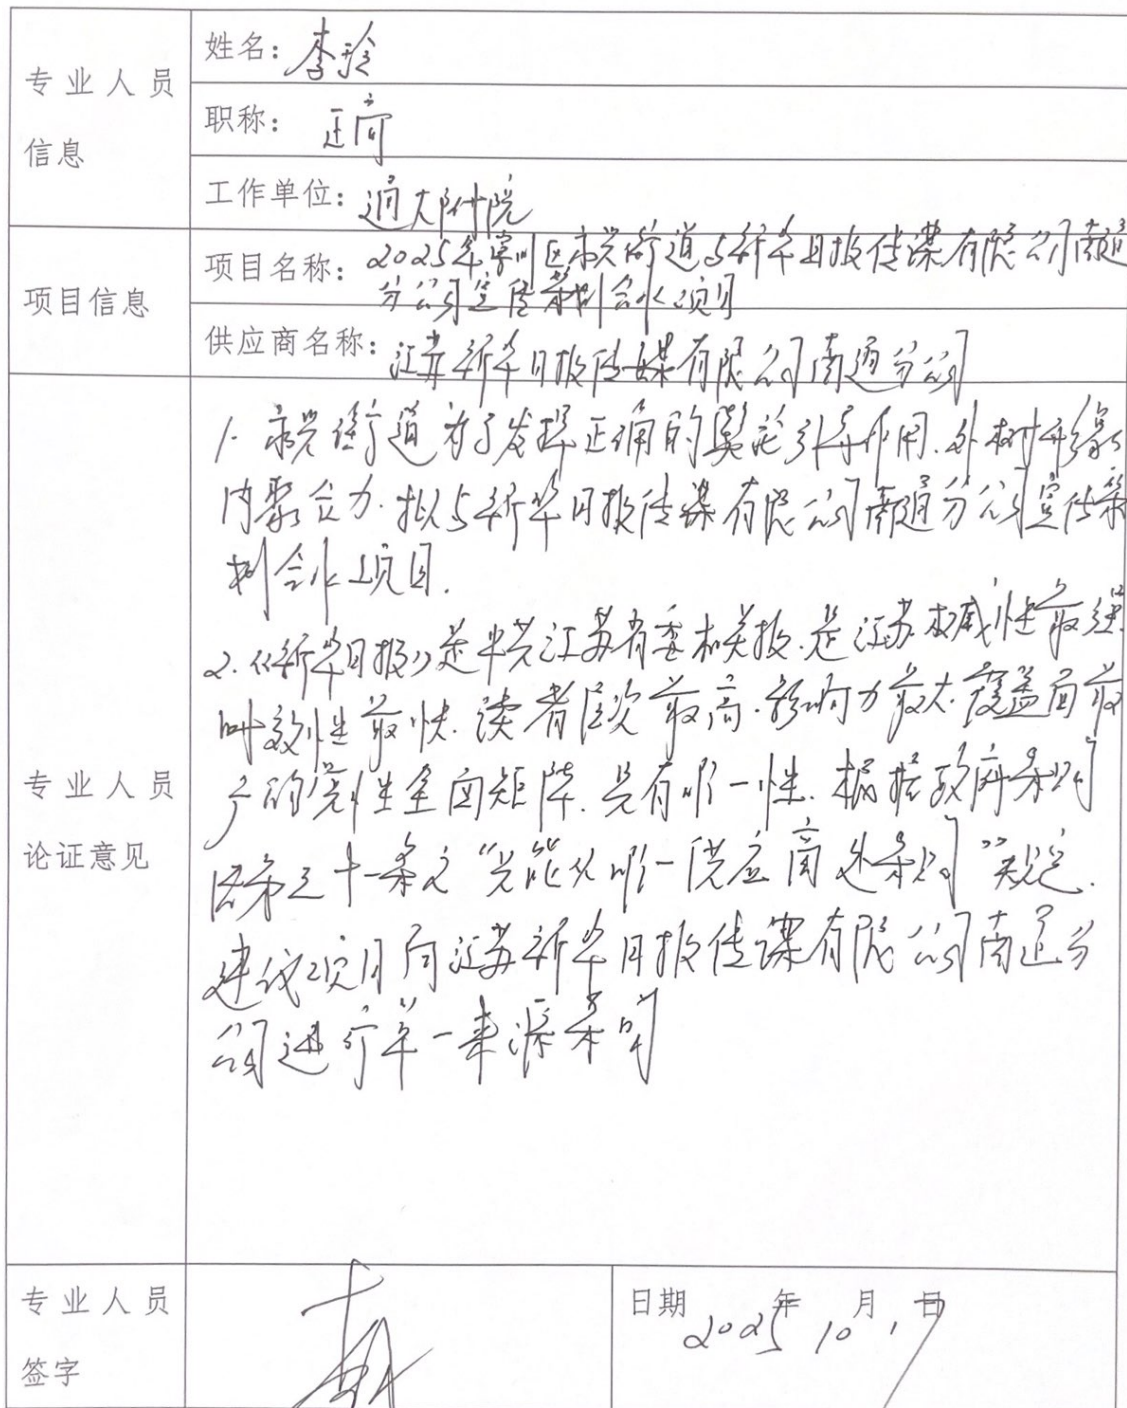 专业人员
信息
姓名：李玲
职称：正高
工作单位：通大附院
项目信息
项目名称：2025年崇川区永兴街道与新华日报传媒有限公司南通
分公司宣传策划合作项目
供应商名称：江苏新华日报传媒有限公司南通分公司
专业人员
论证意见
1. 永兴街道为了发挥正确的舆论引导作用.外树形象
内聚合力.拟与新华日报传媒有限公司南通分公司宣传策
划合作项目.
2.《新华日报》是中共江苏省委机关报.是江苏权威性最强
时效性最快.读者层次最高.影响力最大.覆盖面最
广的党性全面矩阵.具有唯一性.根据政府采购
法第三十一条之“只能从唯一供应商处采购”规定.
建议项目向江苏新华日报传媒有限公司南通分
公司进行单一来源采购
专业人员
签字
日期 2025年10月17日